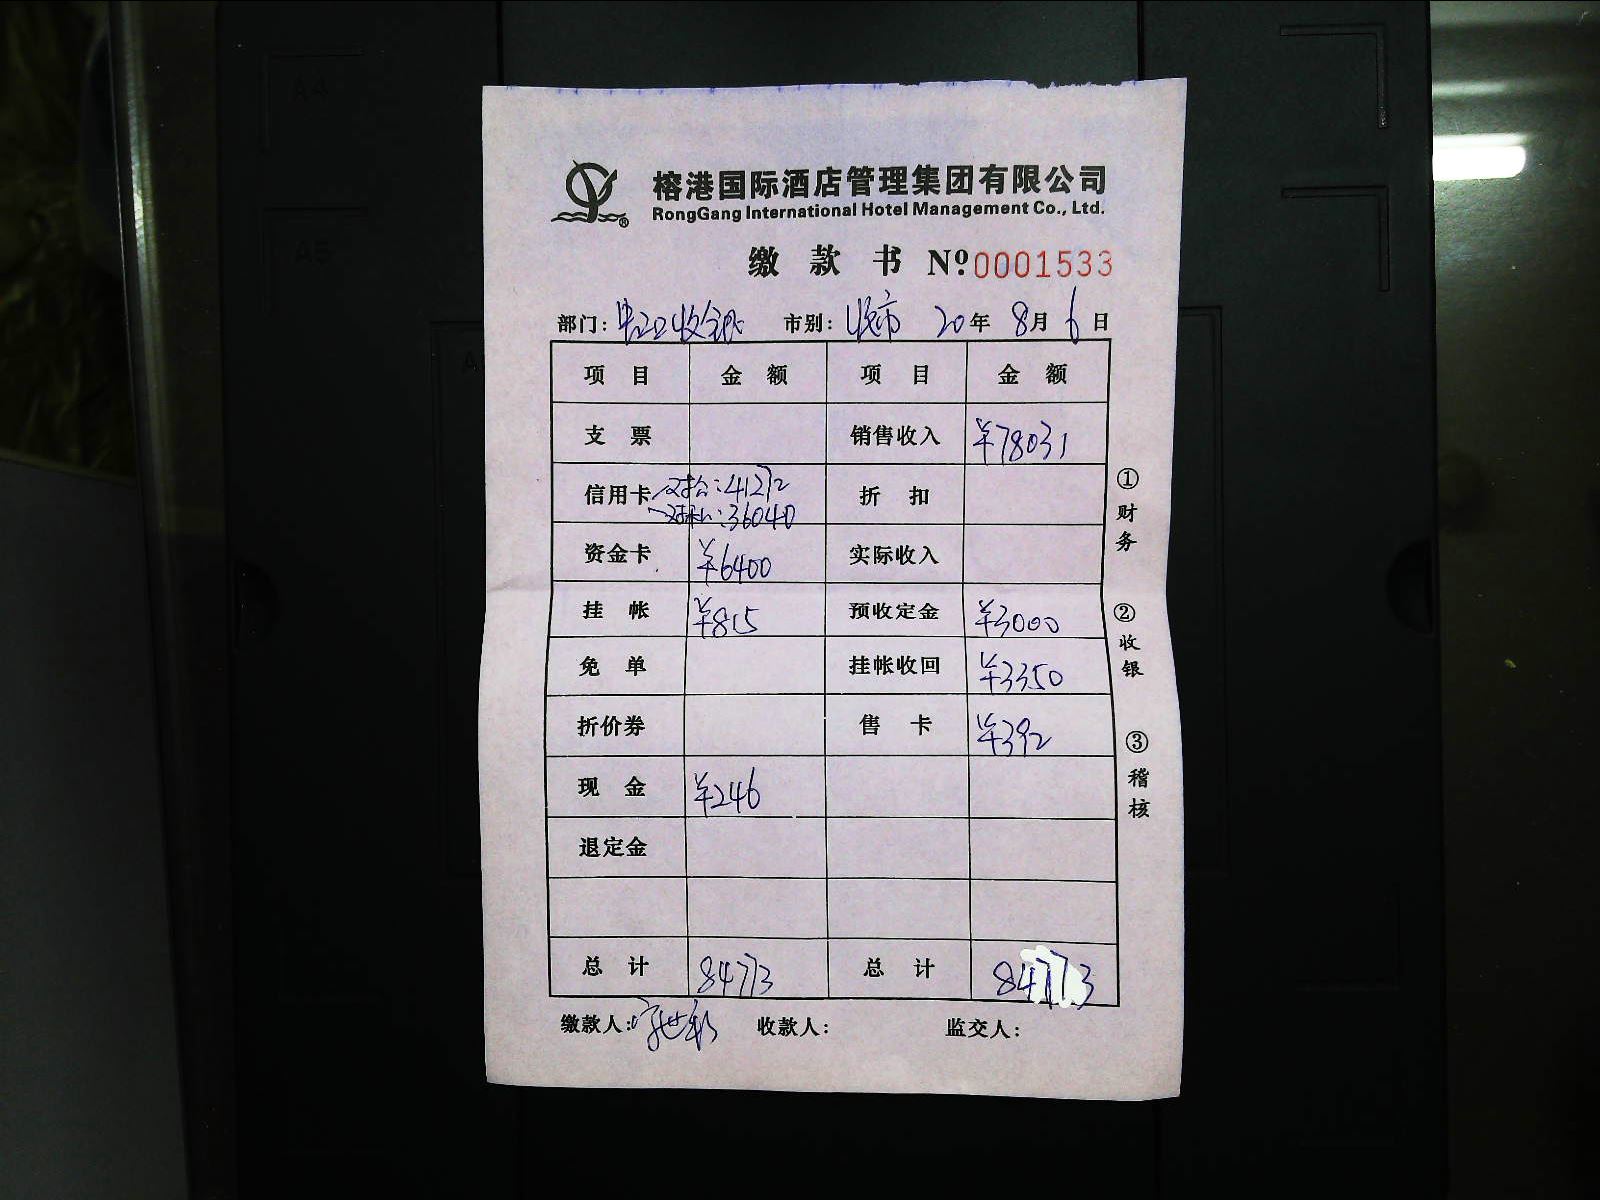 A4
A5
榕港国际酒店管理集团有限公司
RongGang International Hotel Management Co., Ltd.
®
缴 款 书 Nº 0001533
部门: 收银 市别: 晚市 20年 8月 6日
项 目 金 额 项 目 金 额
支 票 销售收入 ¥78031
信用卡 对公:41272 折 扣
对私:36040
资金卡 ¥6400 实际收入
挂 帐 ¥815 预收定金 ¥3000
免 单 挂帐收回 ¥3350
折价券 售 卡 ¥392
现 金 ¥246
退定金
总 计 84773 总 计 84773
缴款人: 收款人: 监交人:
①财务
②收银
③稽核